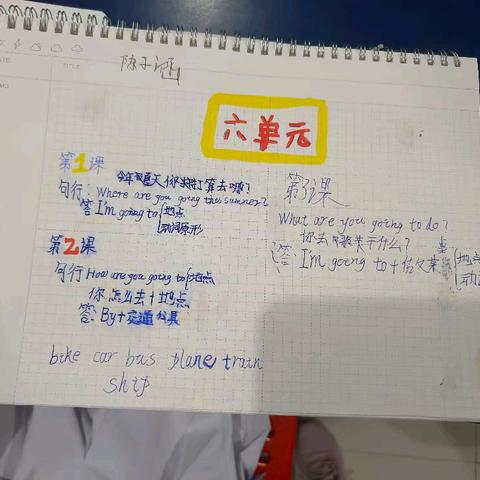 六单元
第1课
今年夏天你打算去哪?
句行: Where are you going this summer?
答 I'm going to 地点
动词原形
第2课
句行 How are you going to 地点
你怎么去+地点
答: By+交通公具
bike car bus plane train
ship
第3课
What are you going to do?
你去
干什么?
答: I'm going to +
地点